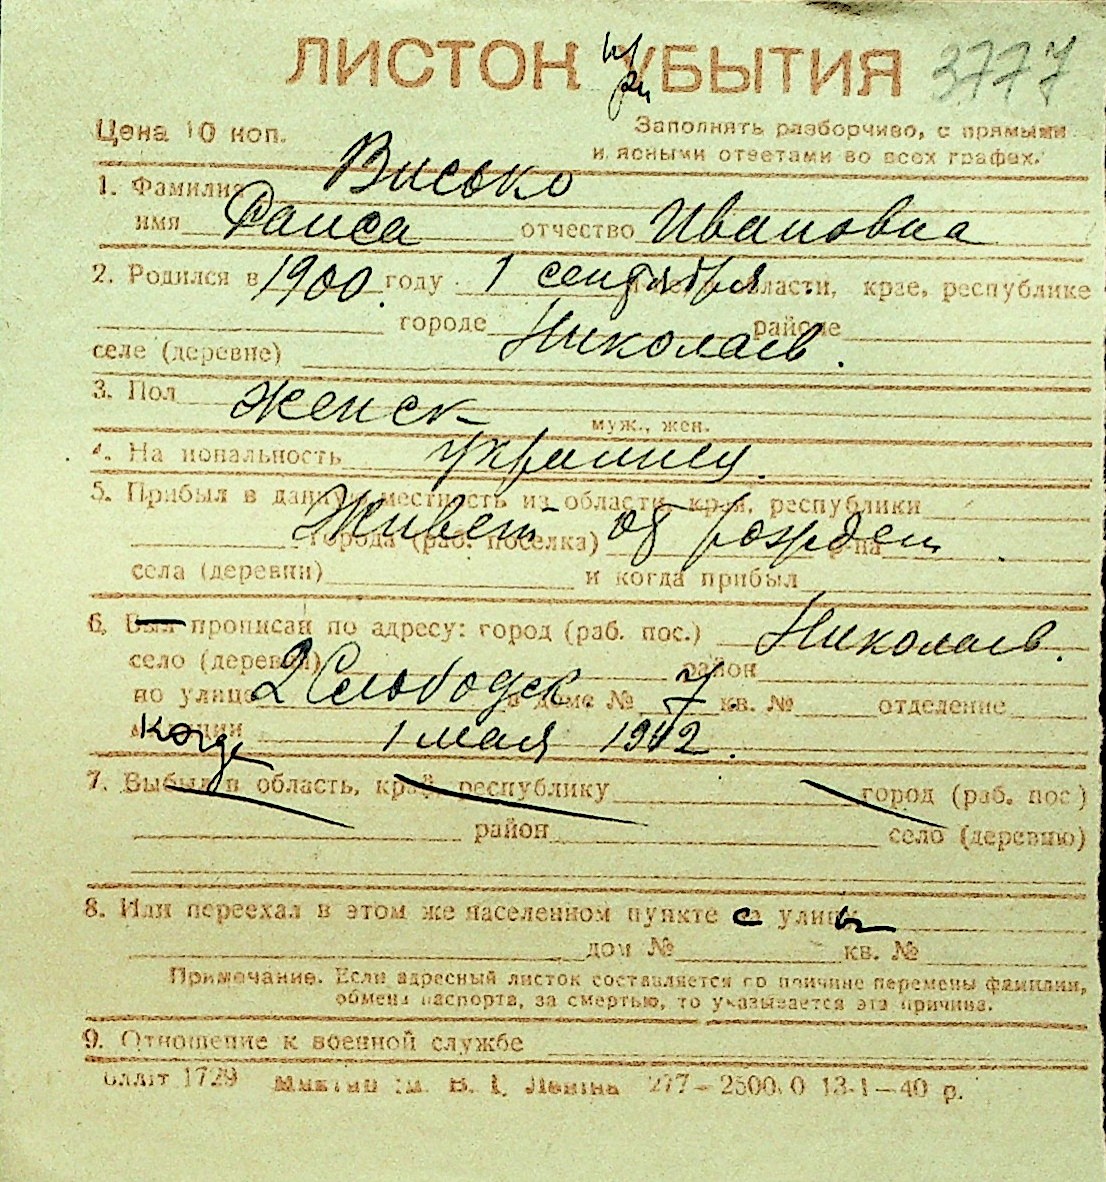 ЛИСТОК при УБЫТИЯ 3777
Цена 10 коп. Заполнять разборчиво, с прямыми
и ясными ответами во всех графах.
1. Фамилия Висько
имя Раиса отчество Ивановна
2. Родился в 1900 году 1 сентября области, крае, республике
городе районе
селе (деревне) Николаев.
3. Пол женск
муж., жен.
4. На иональность украинец.
5. Прибыл в данную местность из области, края, республики
Живет от рожден.
города (раб. поселка) р-на
села (деревни) и когда прибыл
6. Был прописан по адресу: город (раб. пос.) Николаев.
село (деревня) район
по улице 2 Слободск в доме № 7 кв. № отделение
когда 1 мая 1942.
7. Выбыл в область, край, республику город (раб. пос.)
район село (деревню)
8. Или переехал в этом же населенном пункте с улицы
дом № кв. №
Примечание. Если адресный листок составляется по причине перемены фамилии,
обмена паспорта, за смертью, то указывается эта причина.
9. Отношение к военной службе
1729 В. І. Леніна 277— 13-1—40 р.